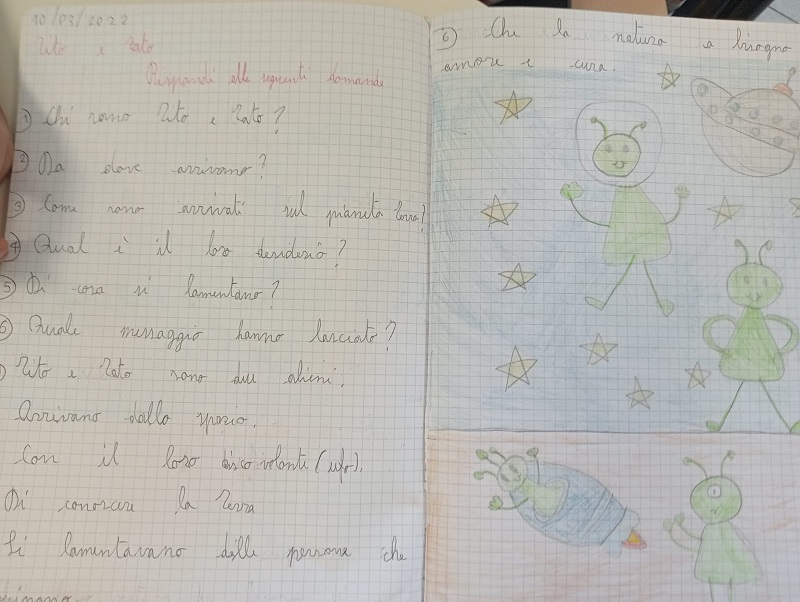 10/03/2022
Zito e Zato
Rispondi alle seguenti domande
1 Chi sono Zito e Zato?
2 Da dove arrivano?
3 Come sono arrivati sul pianeta terra?
4 Qual è il loro desiderio?
5 Di cosa si lamentano?
6 Quale messaggio hanno lasciato?
Zito e Zato sono due alieni.
Arrivano dallo spazio.
Con il loro disco volante (ufo).
Di conoscere la Terra
Si lamentavano delle persone che
6 Che la natura a bisogno
amore e cura.